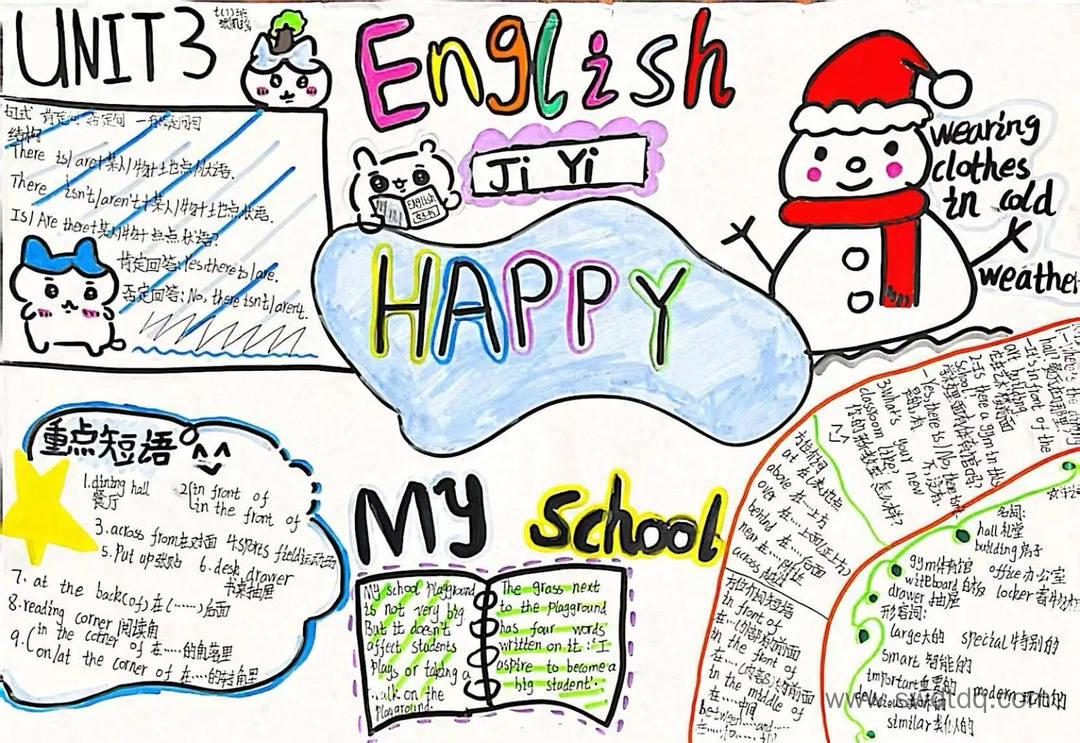 UNIT 3
English
Ji Yi
HAPPY
句式 肯定句 否定句 一般疑问句
结构
There is/are+某人/物+地点状语.
There isn't/aren't+某人/物+地点状语.
Is/Are there+某人/物+地点状语?
肯定回答:Yes,there is/are.
否定回答:No, there isn't/aren't.
ENGLISH
wearing
clothes
in cold
weather
重点短语
1.dining hall
餐厅
2.(in front of
(in the front of
3.across from在对面
4.sports field运动场
5.Put up张贴
6.desk drawer
书桌抽屉
7. at the back(of)在(……)后面
8.reading corner 阅读角
9.(in the corner of 在……的角落里
on/at the corner of 在……的转角里
My School
My school playground
is not very big.
But it doesn't
affect students
plays or taking a
walk on the
playground.
The grass next
to the playground
has four words
written on it: "I
aspire to become a
big student".
hall
-It's in front of the
art building
2.Is there a gym in this
school?
-Yes, there is./No, there isn't.
3.What's your new
classroom like?
你的新教室怎么样?
方位介词
at 在(某地点)
above 在……上方
over 在……上面(正上方)
behind 在……后面
near 在……附近
across
方位介词短语
in front of
在……(外部的)前面
in the front of
在……(内部的)前面
in the middle of
在……中间
between……and……
名词:
hall 礼堂
building 房子
gym 体育馆 office 办公室
witeboard 白板 locker
drawer 抽屉
形容词:
large大的 special 特别的
smart 智能的
important重要的 modern 现代的
delicious美味的
similar 类似的
www.swdtdq.com